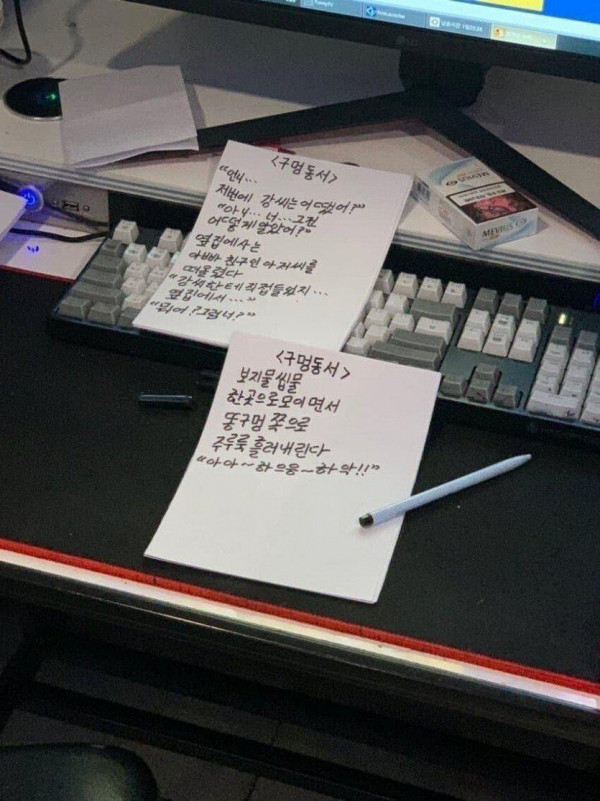 LG
<구멍동서>
"언니...
저번에 강씨는 어땠어?"
"아니... 너... 그건
어떻게 알았어?"
옆집에사는
아빠 친구인 아저씨를
떠올렸다
"강씨한테 직접들었지...
옆집에서..."
"뭐어? 그럼너?"
MEVIUS
MEVIUS
<구멍동서>
보지물 씹물
한곳으로모이면서
똥구멍 쪽으로
주루룩 흘러내린다
"아아~하으응~하악!!"